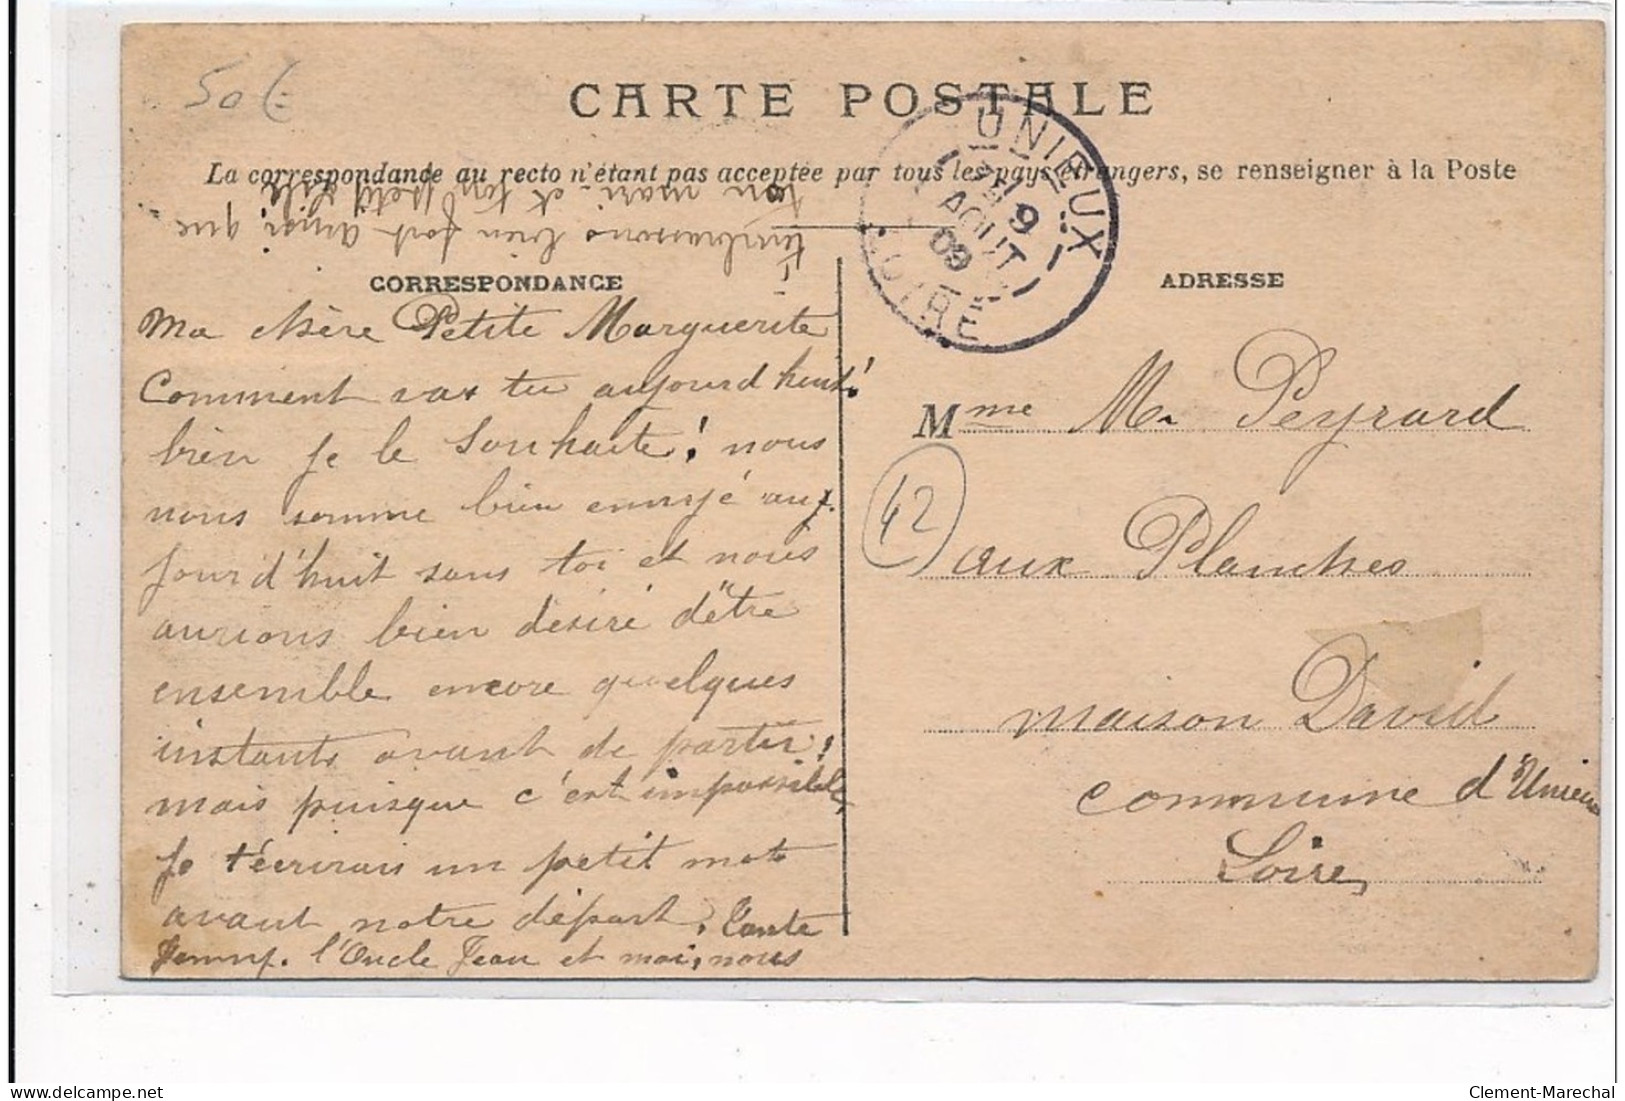 50€
CARTE POSTALE
La correspondance au recto n'étant pas acceptée par tous les pays étrangers, se renseigner à la Poste
UNIEUX
9
AOUT
09
LOIRE
CORRESPONDANCE
ADRESSE
Ma chère Petite Marguerite
Comment vas tu aujourd huit!
bien je le souhaite! nous
nous somme bien ennuyé auj.
jourd'huit sans toi et nous
aurions bien désiré d'être
ensemble encore quelques
instants avant de partir;
mais puisque c'est impossible,
je técrirais un petit mot
avant notre départ. Tante
Jenny. l'Oncle Jean et moi, nous
t'embrassons bien fort ainsi que
ton mari et ton petit
Mme M. Peyrard
42
aux Planches
maison David
commune d'Unieux
Loire,
Clement-Marechal